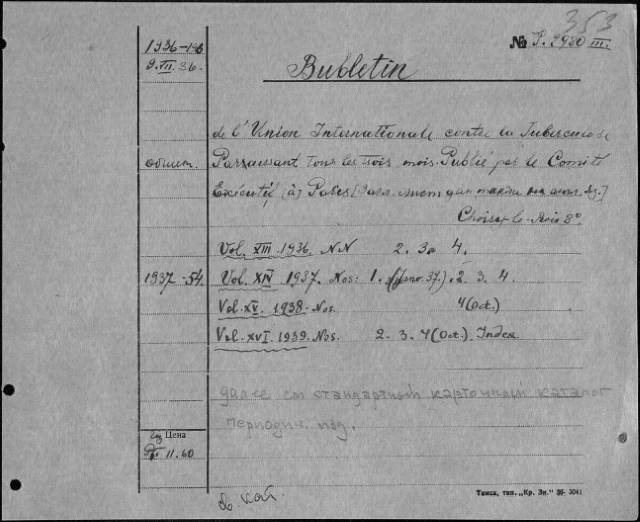 353
1936-
№ J. 2920 III.
9.VII.36.
Bulletin
de l'Union Internationale contre la Tuberculose
Paraissant tous les trois mois. Publié par le Comité
Exécutif [à] Paris
Choisy-le-Roi 8°
Vol. XIII 1936. NN 2. 3 4.
1937-54. Vol. XIV 1937. Nos: 1. (Janv. 37). 2. 3. 4.
Vol. XV. 1938. Nos. 4 (Oct.)
Vol. XVI. 1939. Nos. 2. 3. 4 (Oct.). Index
далее см стандартный карточный каталог
периодич. изд.
Цена
11.60
Томск, тип. „Кр. Зн." 36- 3041